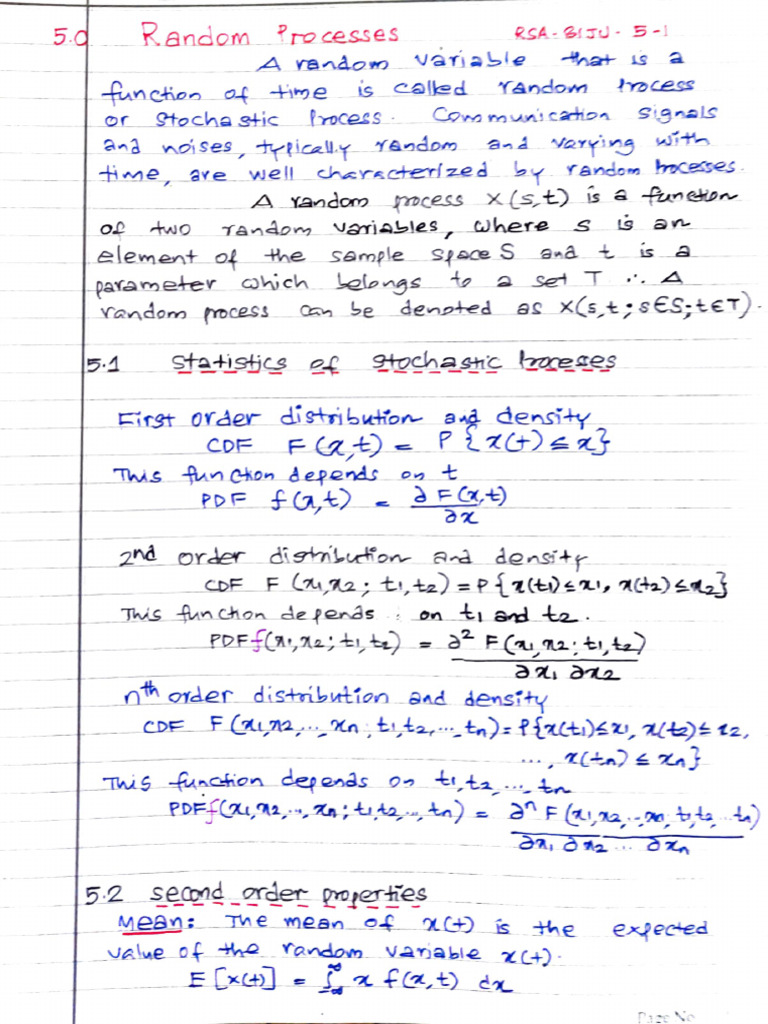 5.0 Random Processes RSA-BIJU-5-1
A random variable that is a
function of time is called random Process
or Stochastic Process. Communication signals
and noises, typically random and varying with
time, are well characterized by random Processes.
A random process X(s,t) is a function
of two random variables, where s is an
element of the sample space S and t is a
parameter which belongs to a set T ∴ A
random process can be denoted as X(s,t; s∈S; t∈T).
5.1 Statistics of Stochastic Proceses
First order distribution and density
CDF F(x,t) = P{x(t) ≤ x}
This function depends on t
PDF f(x,t) = ∂F(x,t)
∂x
2nd order distribution and density
CDF F(x1,x2; t1,t2) = P{x(t1) ≤ x1, x(t2) ≤ x2}
This function depends on t1 and t2.
PDF f(x1,x2; t1,t2) = ∂² F(x1,x2; t1,t2)
∂x1 ∂x2
nth order distribution and density
CDF F(x1,x2,..., xn; t1,t2,..., tn) = P{x(t1) ≤ x1, x(t2) ≤ x2,
..., x(tn) ≤ xn}
This function depends on t1,t2,..., tn
PDF f(x1,x2,..., xn; t1,t2,..., tn) = ∂ⁿ F(x1,x2,..xn, t1,t2...tn)
∂x1 ∂x2 ... ∂xn
5.2 second order properties
Mean: The mean of x(t) is the expected
value of the random variable x(t).
E[x(t)] = ∫-∞^∞ x f(x,t) dx
Page No